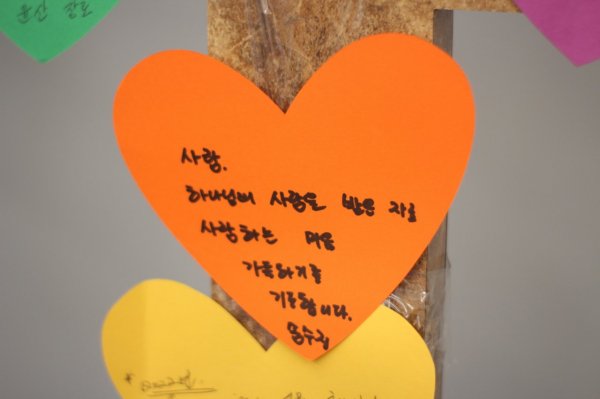 윤산 장로
사랑.
하나님의 사랑을 받은 자로
사랑하는 마음
가득하기를
기도합니다.